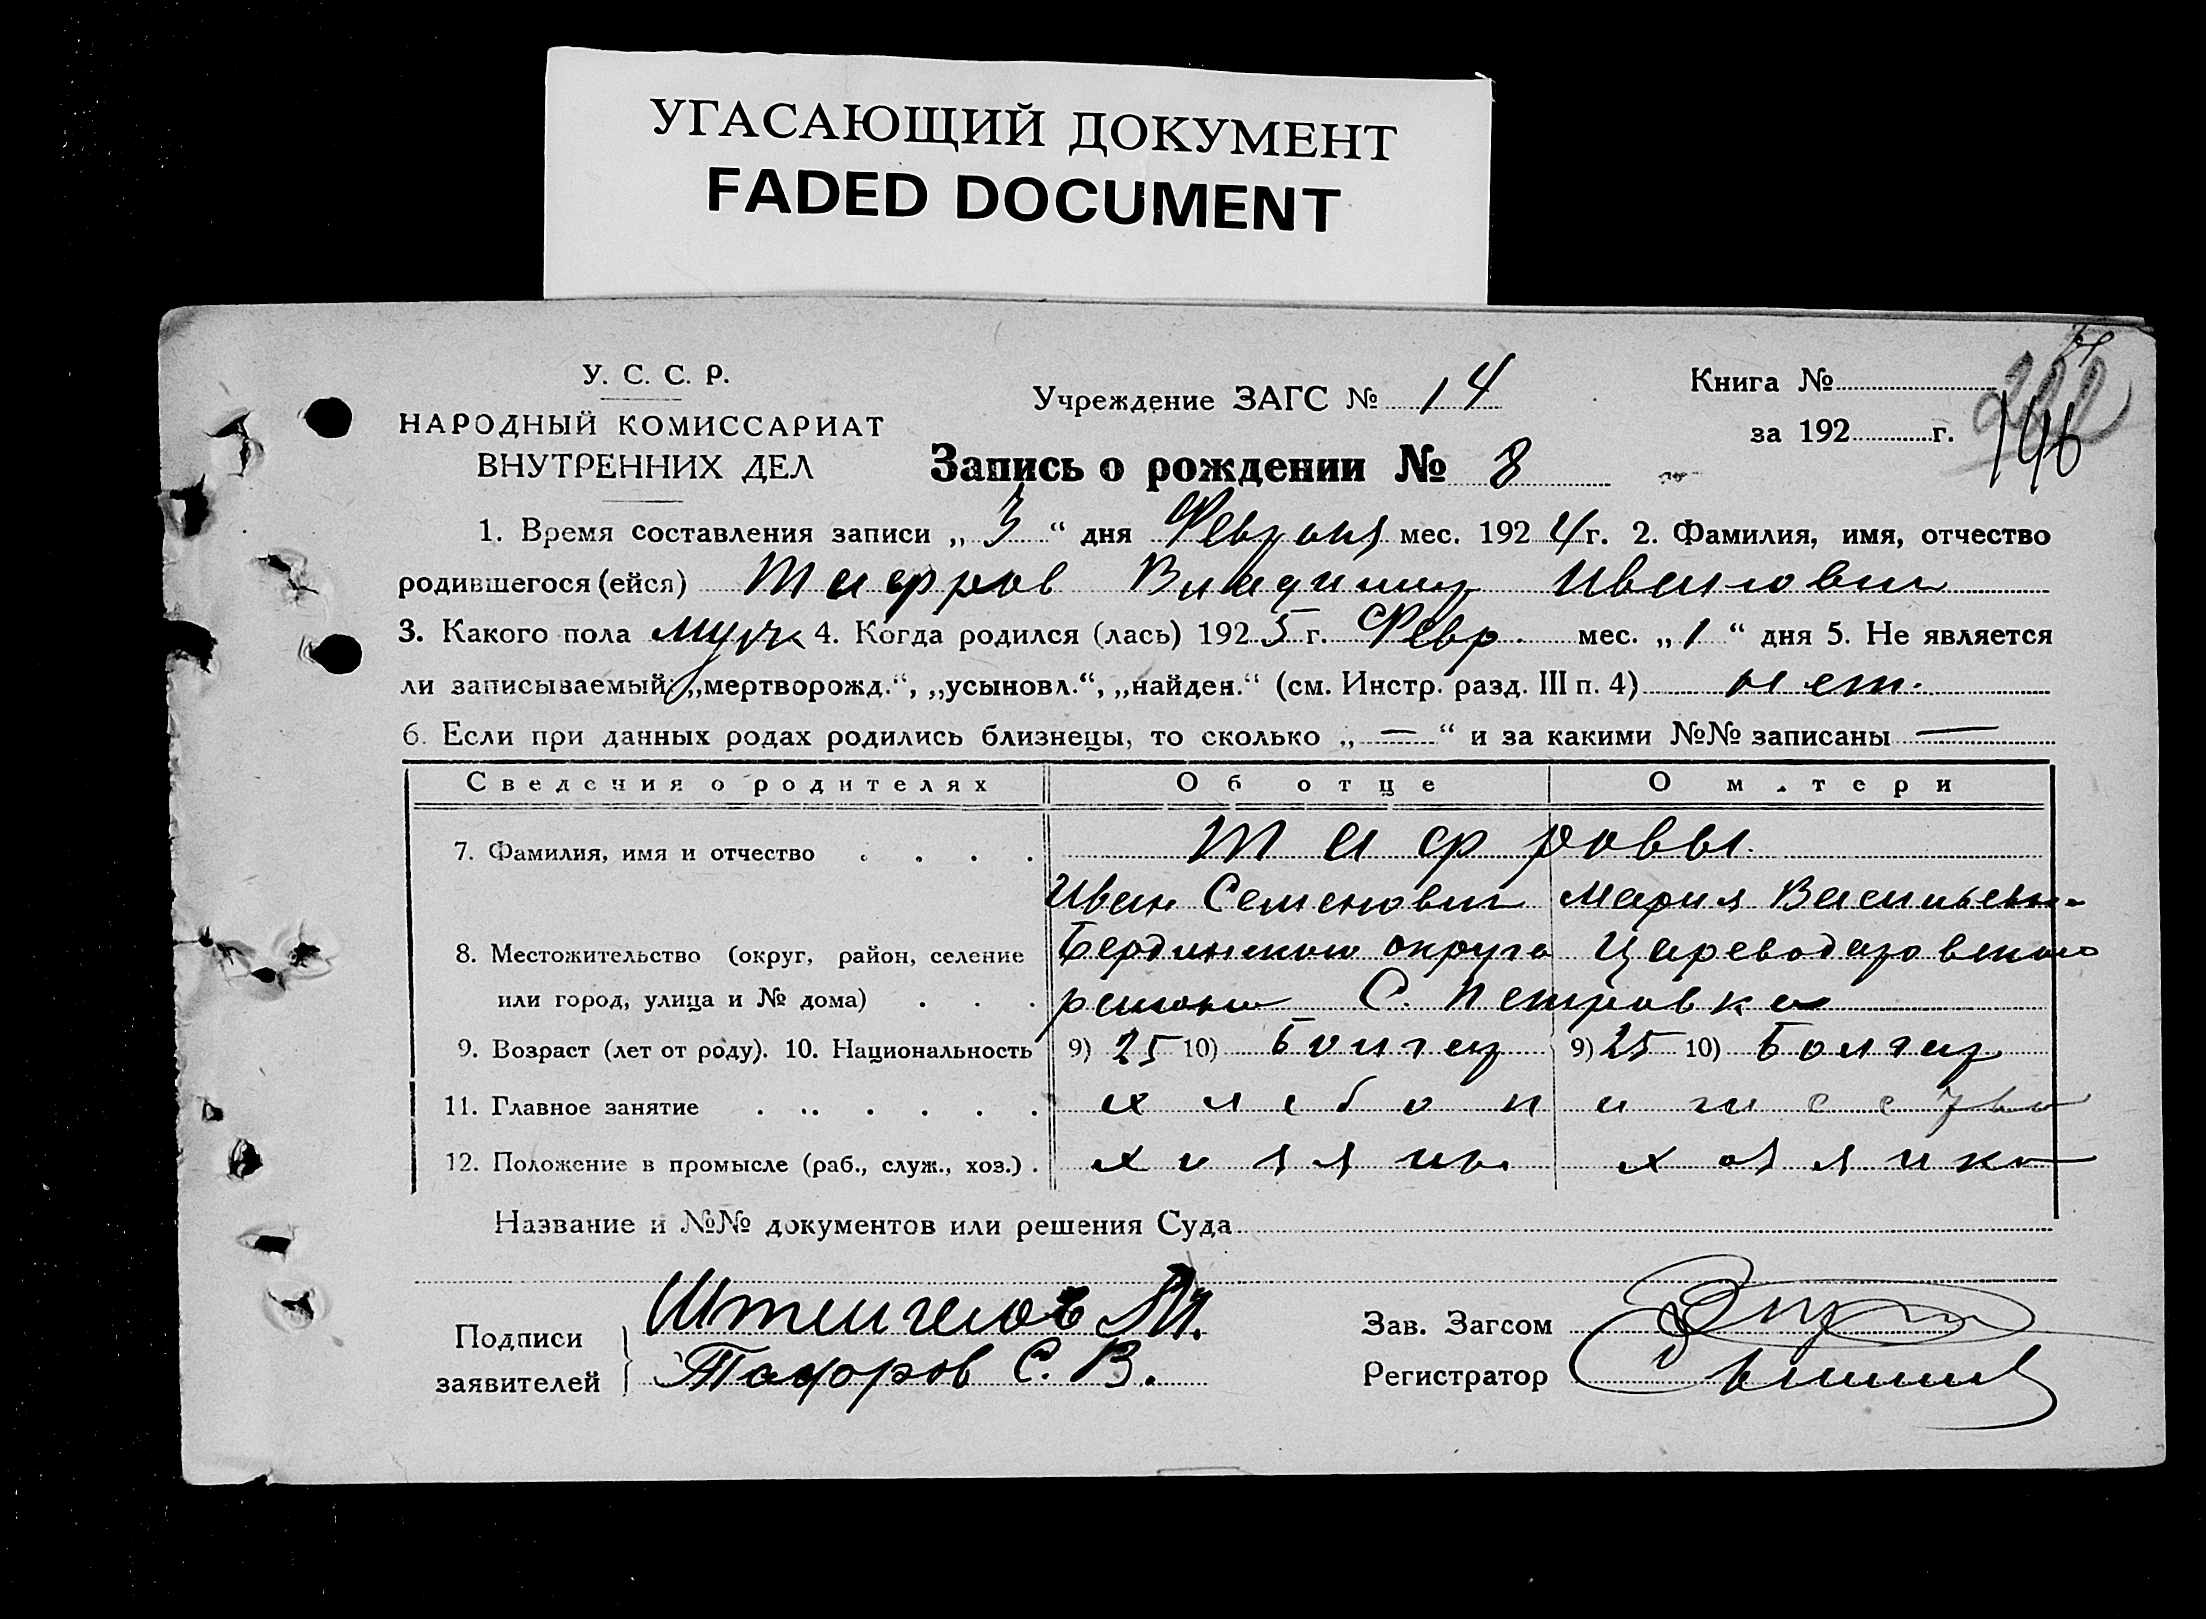 УГАСАЮЩИЙ ДОКУМЕНТ
FADED DOCUMENT
У. С. С. Р.
НАРОДНЫЙ КОМИССАРИАТ
ВНУТРЕННИХ ДЕЛ
Учреждение ЗАГС № 14
Книга №
за 192 г.
146
Запись о рождении № 8
1. Время составления записи „ 3 “ дня Февраля мес. 192 4 г. 2. Фамилия, имя, отчество
родившегося (ейся) Тафров Владимир Иванович
3. Какого пола мужч 4. Когда родился (лась) 192 5 г. Февр. мес. „ 1 “ дня 5. Не является
ли записываемый: „мертворожд.“, „усыновл.“, „найден.“ (см. Инстр. разд. III п. 4) нет.
6. Если при данных родах родились близнецы, то сколько „ — “ и за какими №№ записаны —
Сведения о родителях Об отце О м.тери
7. Фамилия, имя и отчество . . . . Тафровы.
Иван Семенович Мария Васильевн
8. Местожительство (округ, район, селение Бердинского округа Цареводаровского
или город, улица и № дома) . . . района С. Петровка
9. Возраст (лет от роду). 10. Национальность 9) 25 10) Болгар 9) 25 10) Болгар
11. Главное занятие . . . . . . хлебопашество
12. Положение в промысле (раб., служ., хоз.) . хозяин хозяйка
Название и №№ документов или решения Суда
Подписи
заявителей
Тафоров С. В.
Зав. Загсом
Регистратор